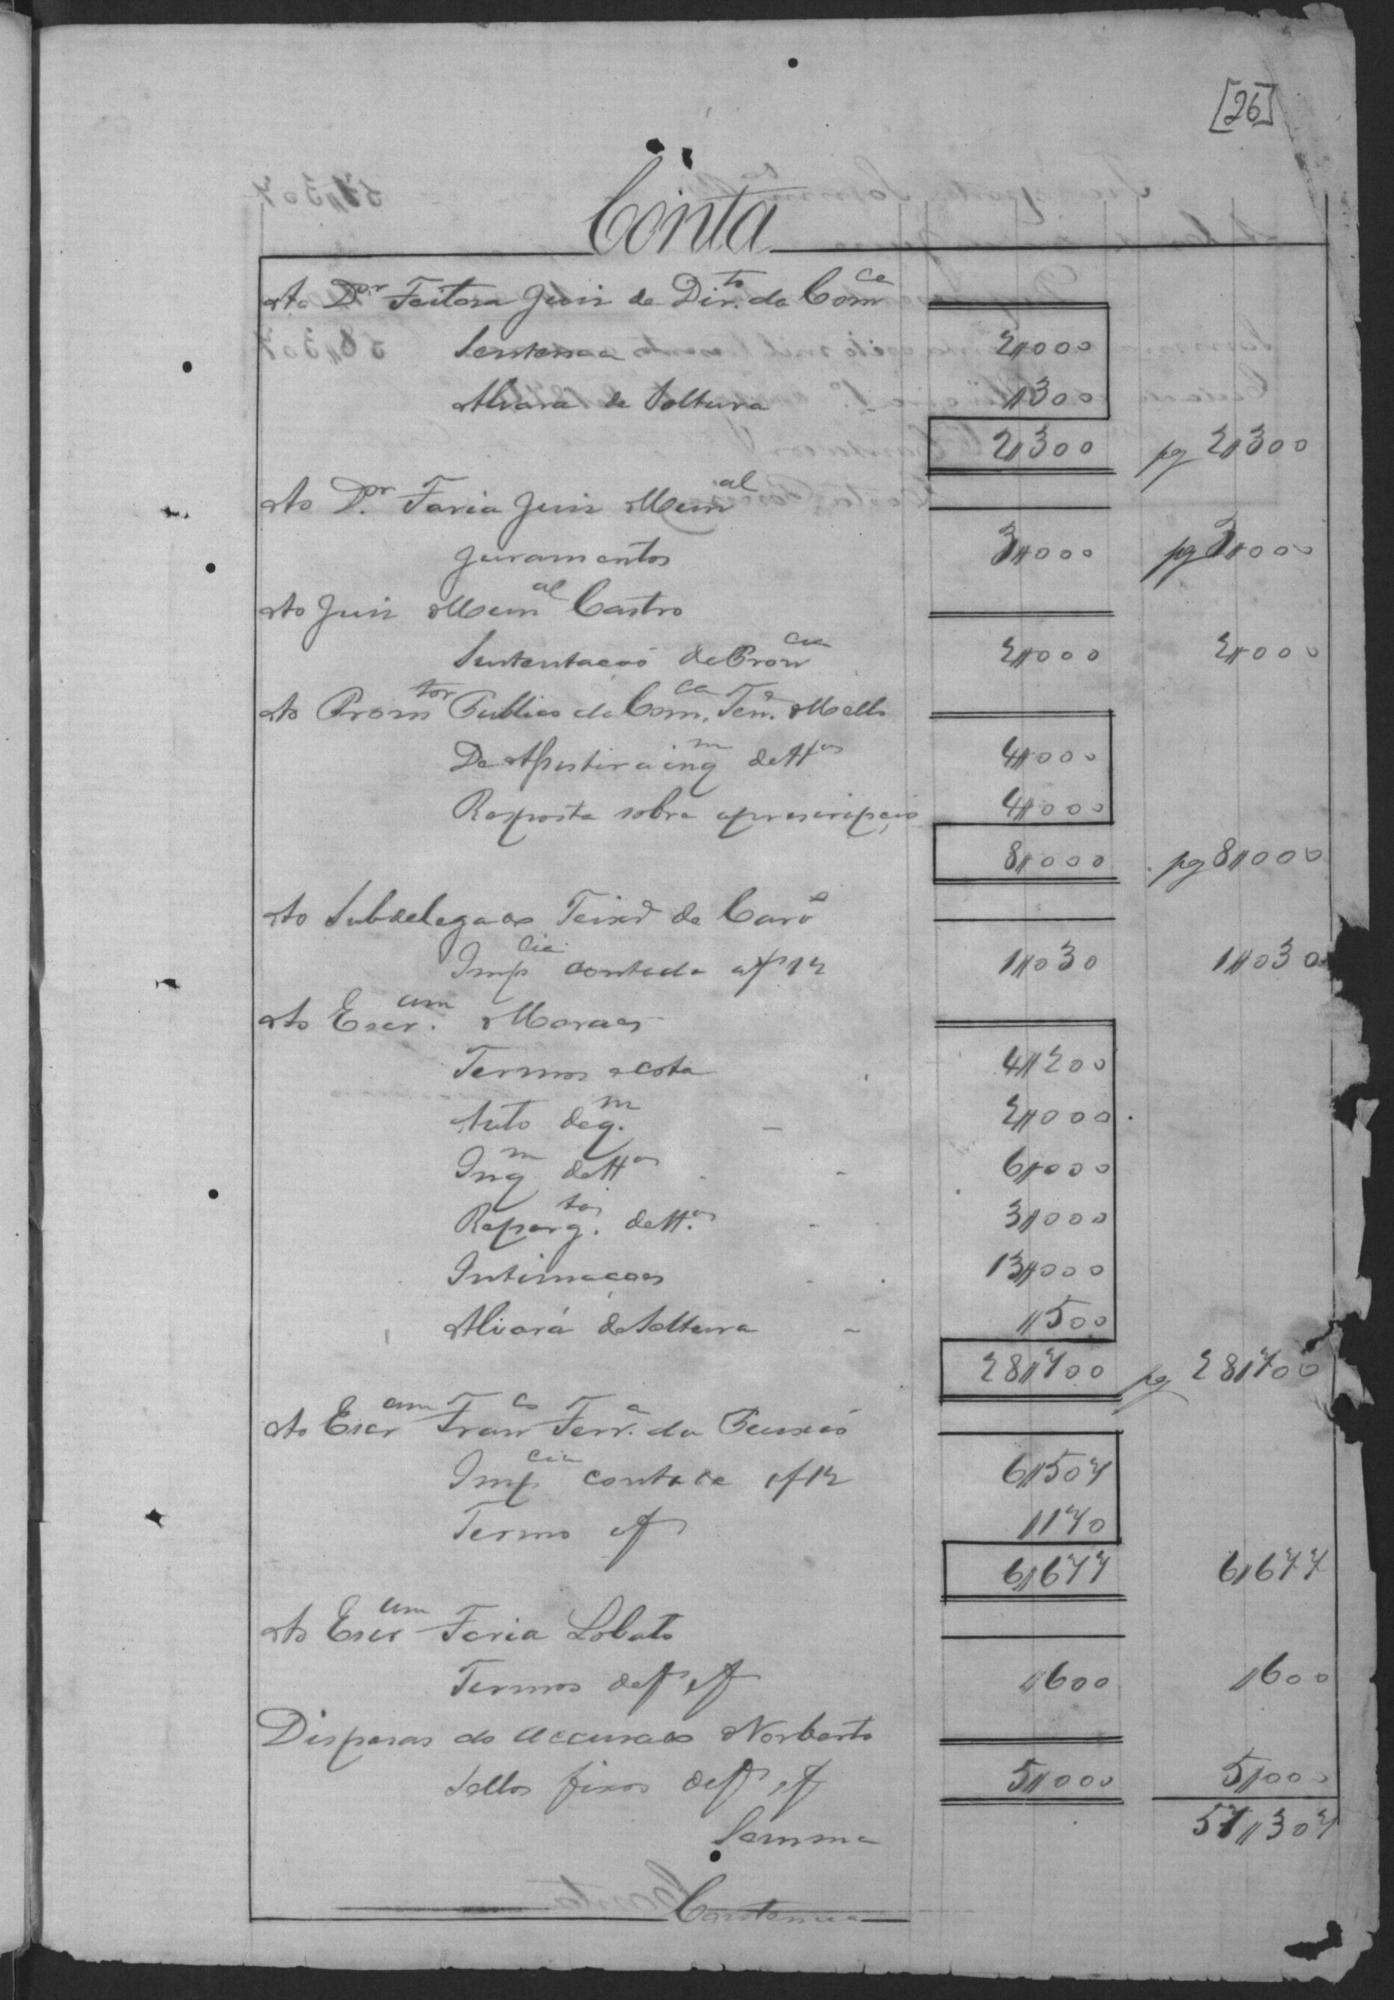 [26]
Conta
Ao Dor Feitosa Juiz de Dirto da Comca
Sentença 2//000
Alvara de Soltura //300
2//300 pg 2//300
Ao Dor Faria Juiz Munal
Juramentos 3//000 pg 3//000
Ao Juiz Munal Castro
Sustentação de Proncia 2//000 2//000
Ao Promtor Publico da Comca Tene Mello
De Assistir a inqm de ttas 4//000
Resposta sobre aprescripção 4//000
8//000 pg 8//000
Ao Subdelegado Teixra de Caro
Impcia contada af 12 1//030 1//030
Ao Escram Moraes
Termos e cota 4//200
Auto de qm 2//000
Inqm de ttas 6//000
Repergtas de ttas 3//000
Intimações 13//000
Alvará de Soltura //500
28//700 pg 28//700
Ao Escram Franco Ferra da Paixão
Impcia contada af 12 6//507
Termo af //170
6//677 6//677
Ao Escram Faria Lobato
Termos de f af //600 //600
Dispesas do accusado Norberto
Sellos fixos de f af 5//000 5//000
Somma 57//307
Continua